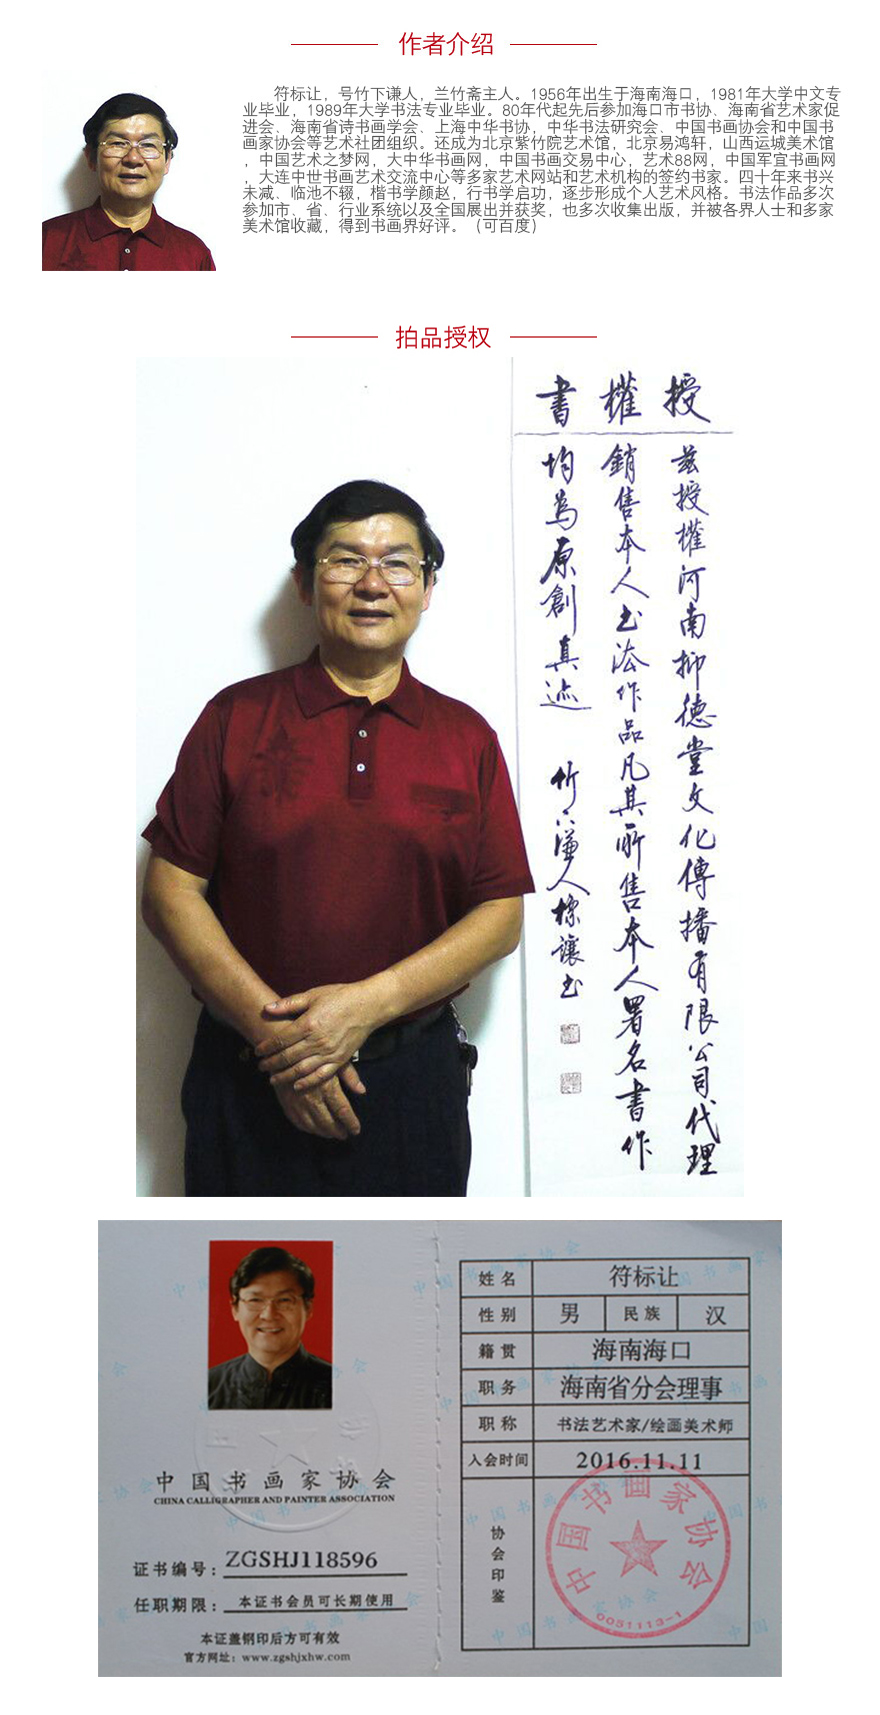 作者介绍
符标让，号竹下谦人，兰竹斋主人。1956年出生于海南海口，1981年大学中文专
业毕业，1989年大学书法专业毕业。80年代起先后参加海口市书协、海南省艺术家促
进会、海南省诗书画学会、上海中华书协，中华书法研究会、中国书画协会和中国书
画家协会等艺术社团组织。还成为北京紫竹院艺术馆，北京易鸿轩，山西运城美术馆
，中国艺术之梦网，大中华书画网，中国书画交易中心，艺术88网，中国军宜书画网
，大连中世书画艺术交流中心等多家艺术网站和艺术机构的签约书家。四十年来书兴
未减、临池不辍，楷书学颜赵，行书学启功，逐步形成个人艺术风格。书法作品多次
参加市、省、行业系统以及全国展出并获奖，也多次收集出版，并被各界人士和多家
美术馆收藏，得到书画界好评。（可百度）
拍品授权
授權書
兹授權河南抑德堂文化傳播有限公司代理
銷售本人书法作品凡其所售本人署名書作
均為原創真迹
竹下謙人標讓书
中国书画家协会
CHINA CALLIGRAPHER AND PAINTER ASSOCIATION
证书编号：ZGSHJ118596
任职期限：本证书会员可长期使用
本证盖钢印后方可有效
官方网址：www.zgshjxhw.com
姓名 符标让
性别 男 民族 汉
籍贯 海南海口
职务 海南省分会理事
职称 书法艺术家/绘画美术师
入会时间 2016.11.11
协会印鉴
中国书画家协会
0051113-1